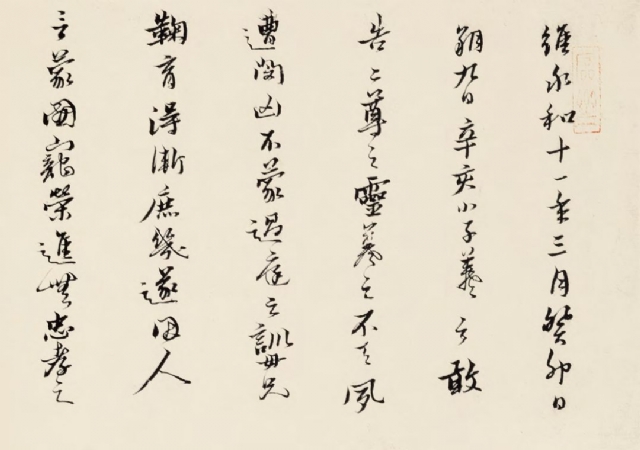 維永和十一年三月癸卯日
朔九日辛亥小子羲之敢
告二尊之靈羲之不天夙
遭閔凶不蒙過庭之訓母兄
鞠育得漸庶幾遂因人
乏蒙國寵榮進無忠孝之